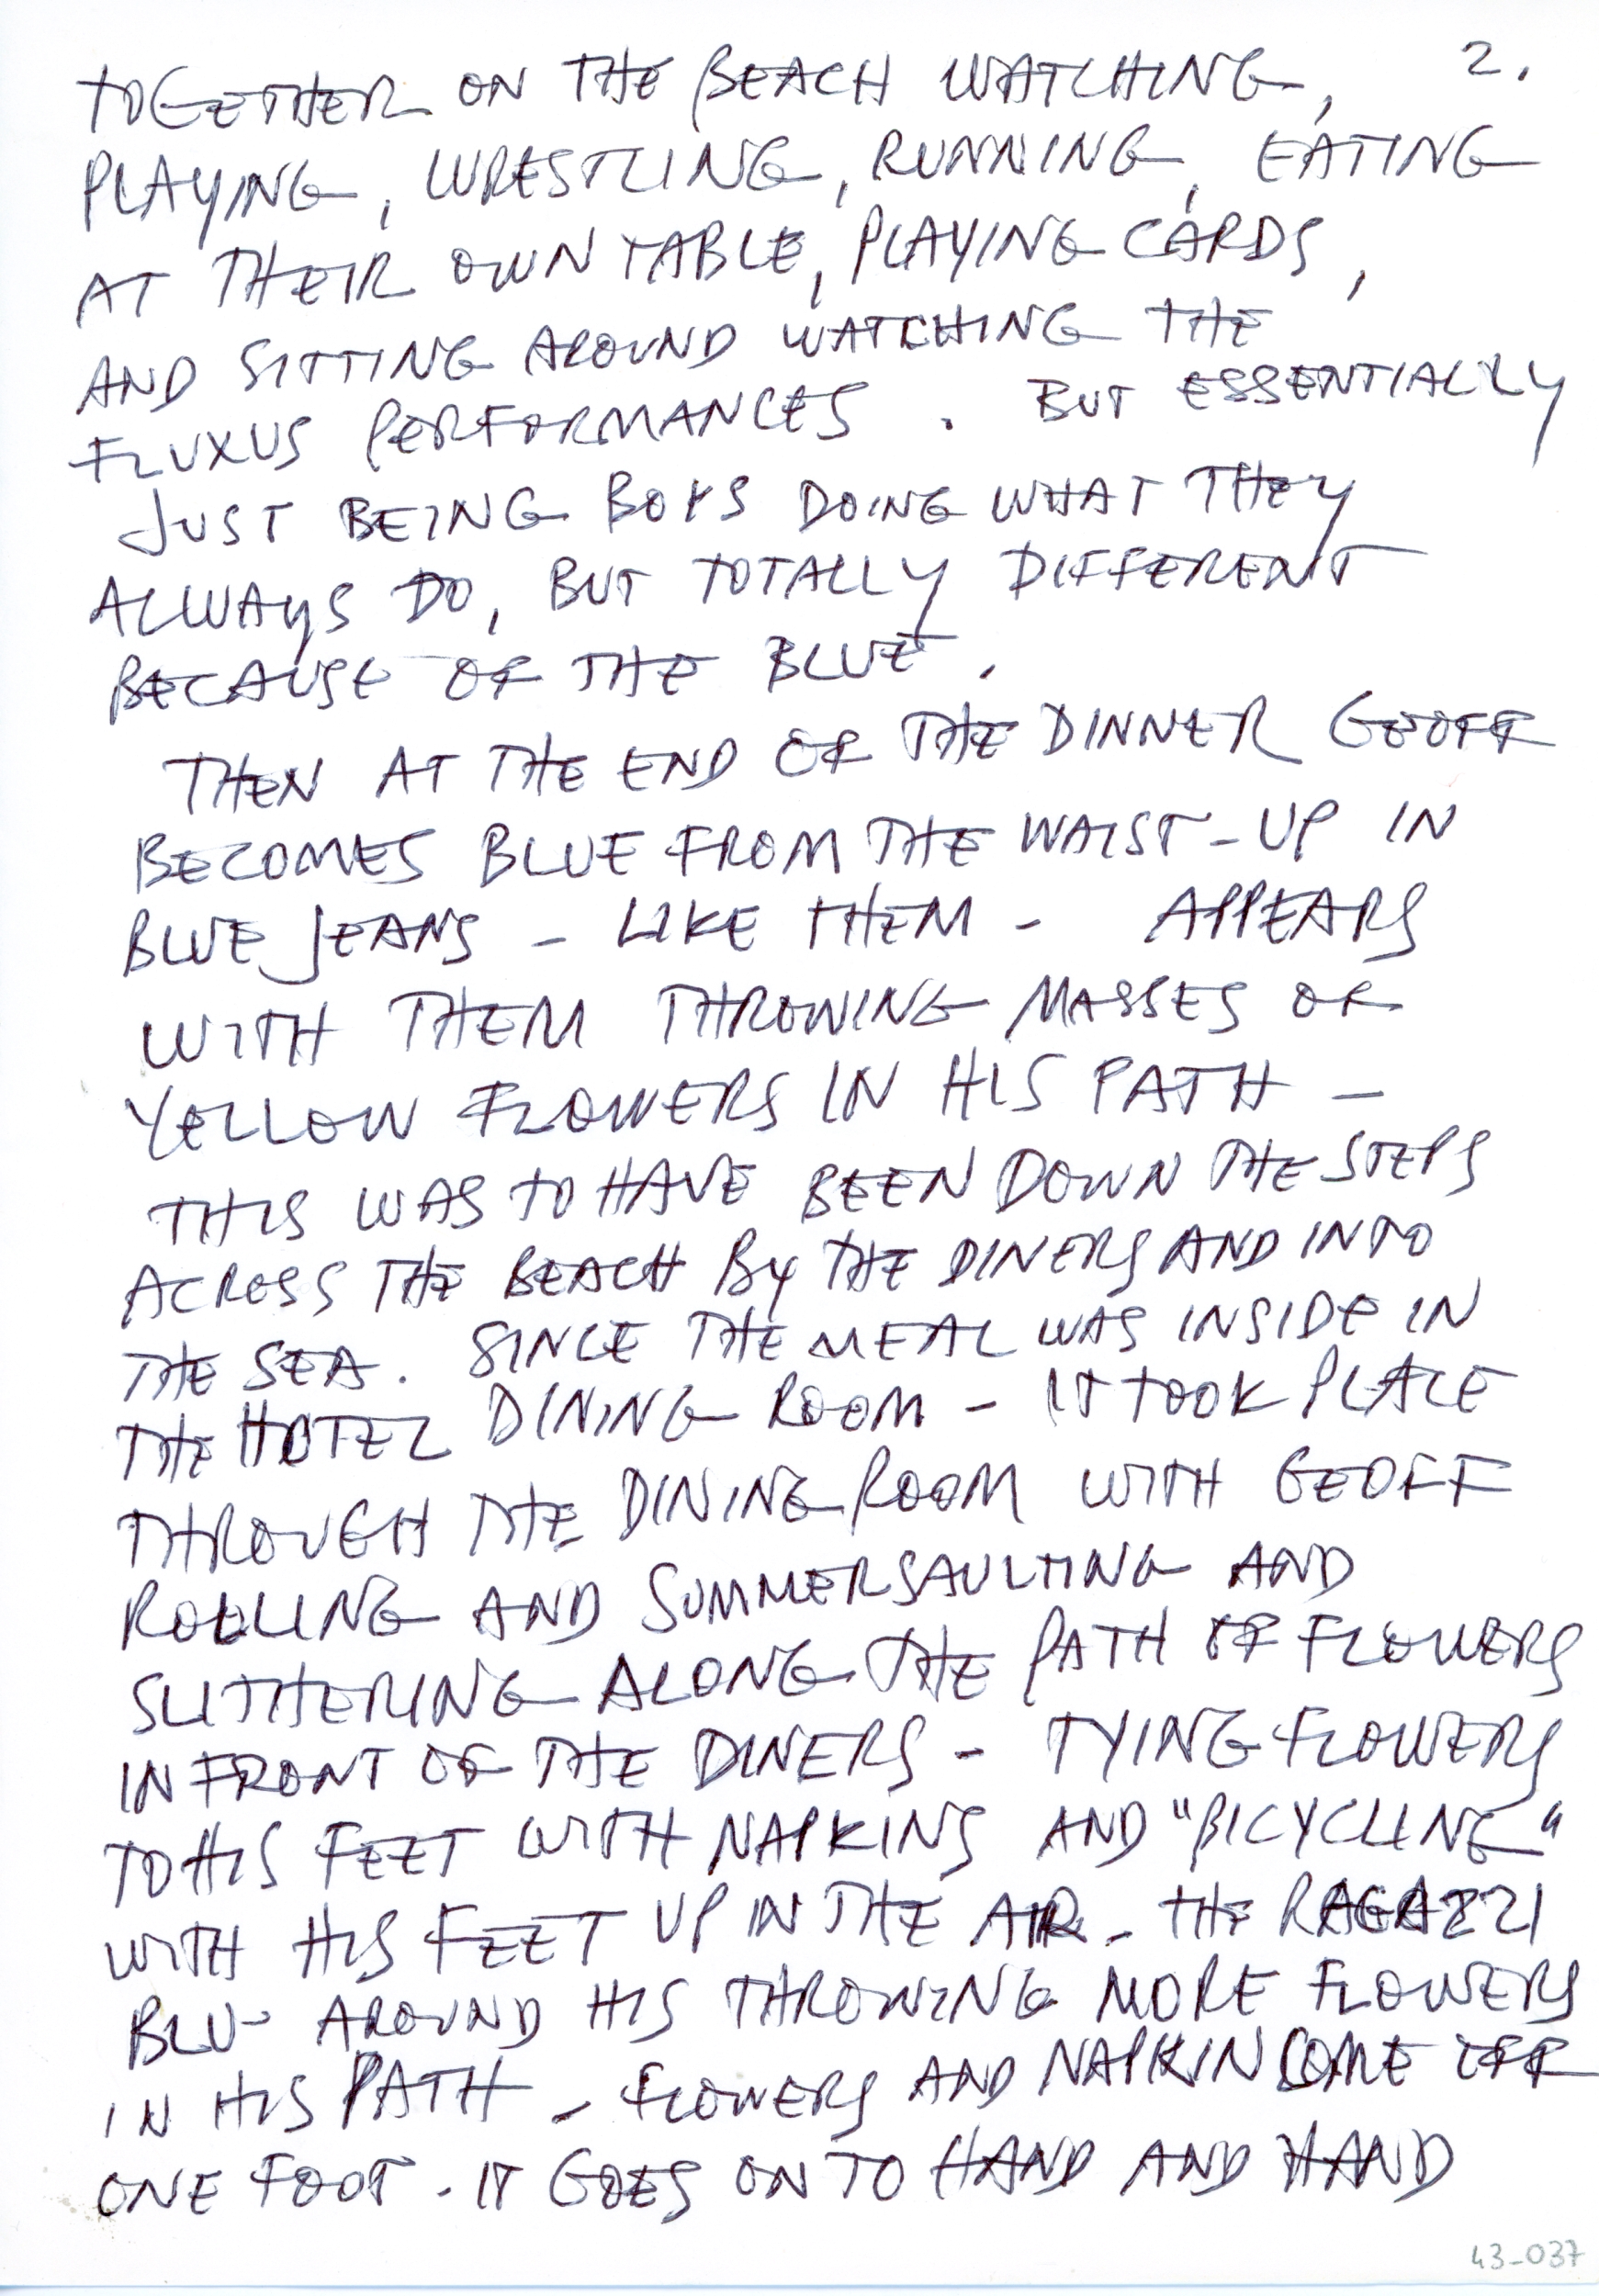 2.
TOGETHER ON THE BEACH WATCHING,
PLAYING, WRESTLING, RUNNING, EATING
AT THEIR OWN TABLE, PLAYING CARDS,
AND SITTING AROUND WATCHING THE
FLUXUS PERFORMANCES. BUT ESSENTIALLY
JUST BEING BOYS DOING WHAT THEY
ALWAYS DO, BUT TOTALLY DIFFERENT
BECAUSE OF THE BLUE.
THEN AT THE END OF THE DINNER GEOFF
BECOMES BLUE FROM THE WAIST-UP IN
BLUE JEANS - LIKE THEM - APPEARS
WITH THEM THROWING MASSES OF
YELLOW FLOWERS IN HIS PATH -
THIS WAS TO HAVE BEEN DOWN THE STEPS
ACROSS THE BEACH BY THE DINERS AND INTO
THE SEA. SINCE THE MEAL WAS INSIDE IN
THE HOTEL DINING ROOM - IT TOOK PLACE
THROUGH THE DINING ROOM WITH GEOFF
ROLLING AND SUMMERSAULTING AND
SLITHERING ALONG THE PATH OF FLOWERS
IN FRONT OF THE DINERS - TYING FLOWERS
TO HIS FEET WITH NAPKINS AND "BICYCLING"
WITH HIS FEET UP IN THE AIR - THE RAGAZZI
BLU AROUND HIS THROWING MORE FLOWERS
IN HIS PATH - FLOWERS AND NAPKIN COME OFF
ONE FOOT. IT GOES ON TO HAND AND HAND
43-037